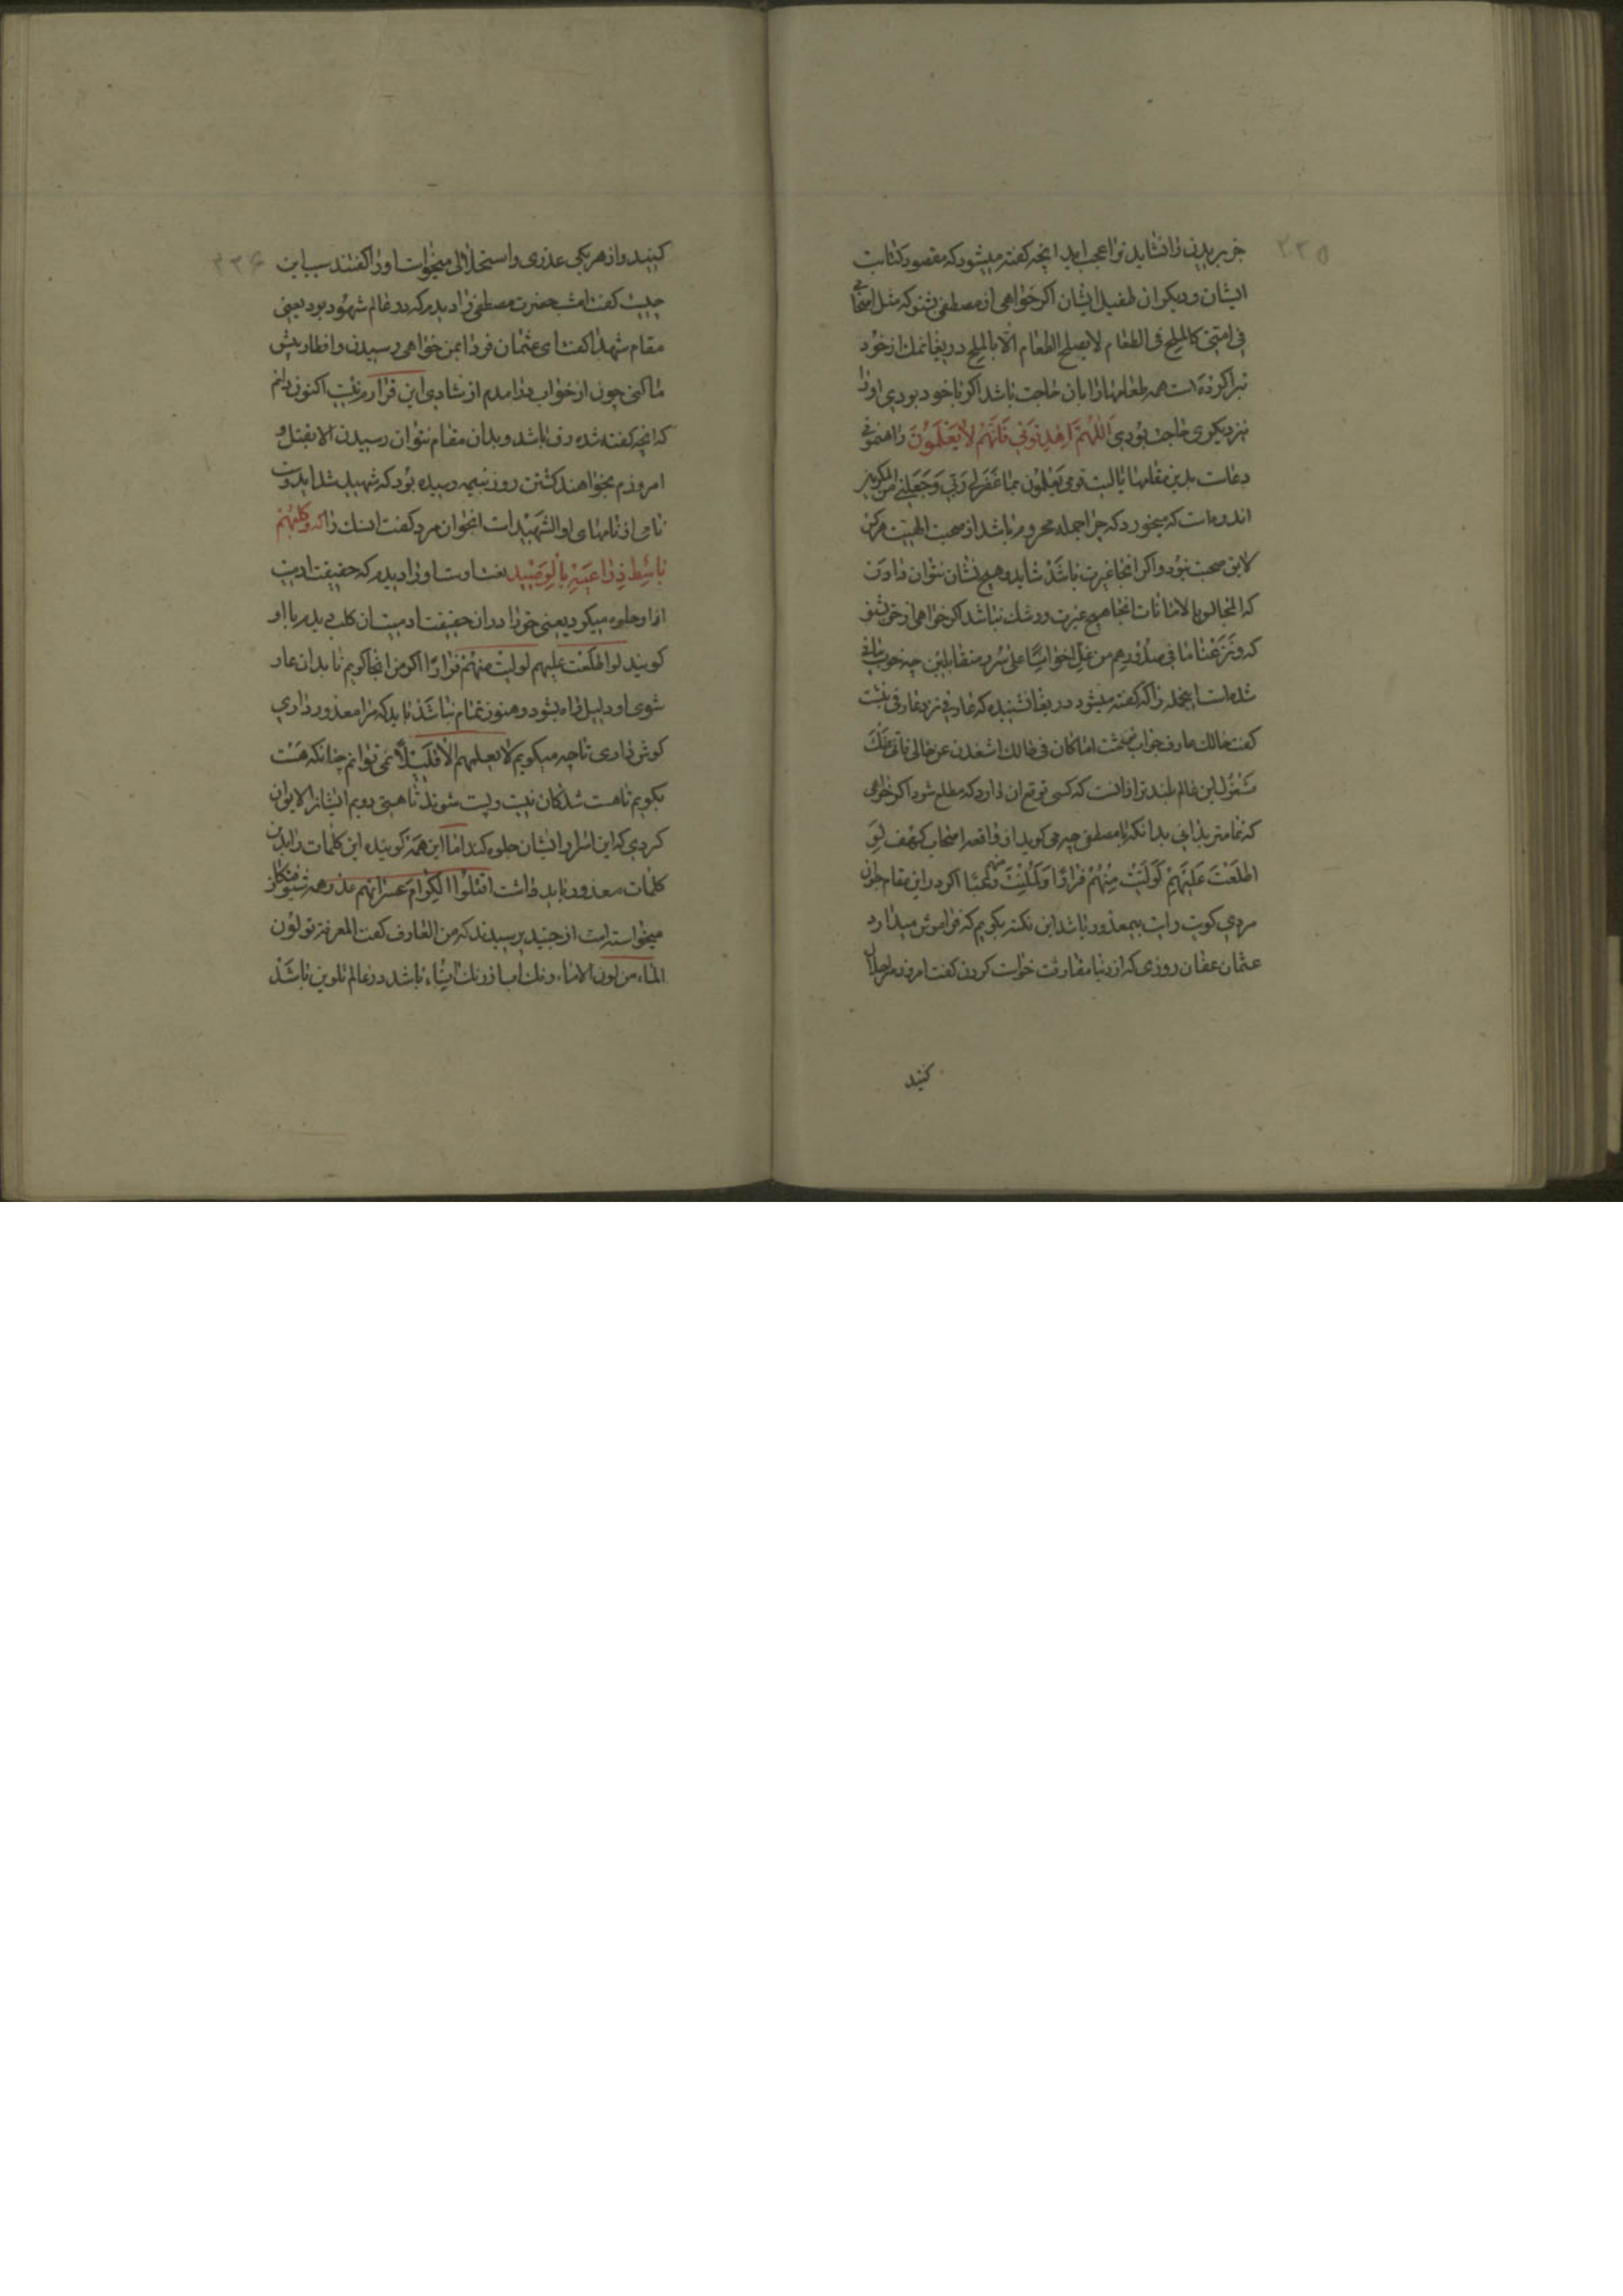 ۳۳۵
جز بریدن را نشاید ترا عجب اید انچه کفته میشود که مقصود کتابت
ایشان و دیکران طفیل ایشان اکر خواهی از مصطفی بشنو که مثل اصحابی
فی امتی کالملح فی الطعام لا یصلح الطعام الّا بالملح دریغا نمک از خود
تبرا کرده است همه طعامها را بان حاجت باشد اکر با خود بودی او را
نیز دیکری حاجت بودی اَللّهُمَّ اهْدِ قَوْمی فَاِنَّهُمْ لا یَعْلَمُونَ راهنمونی
دعات بدین مقامها یا لیت قومی یَعْلَمُون بما غَفَرَلی رَبّی وَجَعَلَنی من المکرمین
اندوهست که میخورد که چرا جمله محروم باشد از صحبت الهیت هرکز
لایق صحبت نبود و اکر انجا غیرت باشد شاید و هیچ نشان نتوان دادن
که انجا لوبا لامانات انجا هیچ غیرت و رشک نباشد اکر خواهی از حق بشنو
که وَنَزَعْنا ما فی صُدُورِهِم من غِلّ اخوانًا علی سُرر متقابلین چه خوب بیانی
شده است اینجمله را که کفته میشود دریغا نشنیده که عارفی نزد عارفی نبشت
کفت حالک عارف جواب نبشت اما کان فی حالک اشغلان عن حالی فانی عَنْکَ
مَشْغُول این عالم بلند تر از انست که کسی توقع ان دارد که مطلع شود اکر خواهی
که تمامتر بدانی بدانکه با مصطفی چه می کوید از واقعه اصحاب کهف لَوِ
اطلَعْتَ عَلَیْهِمْ لَوَلَّیْتَ مِنْهُمْ فِرارًا وَ لَمُلِئْتَ منهم رُعْبًا اکر در این مقام جوان
مردی کویت و ایت ببیند معذور باشد این نکته بکویم که فراموش میدارد
عثمان عفان روزی که از دنیا مفارقت خواست کردن کفت امروز مرا حلال
کنید
۳۳۶
کنید و از هریکی عذری و استحلالی میخواست او را کفتند سبب این
چیست کفت امشب حضرت مصطفی را دیدم که در عالم شهود بود یعنی
مقام شهدا کفت ای عثمان فردا بمن خواهی رسیدن و افطار پیش
ما کنی چون از خواب درامدم از شادی این قرارم نیست اکنون دانم
که انچه کفته شده رفـ باشد و بدان مقام نتوان رسیدن الا بقتل و
امروزم بخواهند کشتن روز نیمه رسیده بود که شهید شد ای دوست
نامی از نامهای او الشهید است انجوان مرد کفت ان سک را که وَکَلْبُهُمْ
باسِطٌ ذِراعَیْهِ بِالْوَصِیدِ او را دیدم که حقیقت ادمیت
از او جلوه میکرد یعنی خود را در ان حقیقت ادمیت ان کلب دیدم با او
کویند لو اطلعت علیهم لولیت منهم فرارًا اکر من انجا کویم تا بدان عار
شوی او دلیل راه بشود و هنوز تمام نباشد باید که مرا معذور داری
کوش داری تا چه میکویم لا یعلمهم الا قلیلًا نمی توانم چنانکه هَسْت
بکویم تا هست شدکان نیست و پست شوند تا هستی دویم ایشانرا لایق ان
کردی که این اسرار بر ایشان جلوه کند اما این همه کوینده این کلمات را بدین
کلمات معذور باید داشت اقتلوا الکرام عسراتهم عذر همه
میخواسته است از جنید پرسیدند که من العارف کفت المعرفة تو لون
الماء من لون الاناء رنک اب از رنک اناء باشد در عالم تلوین باشد